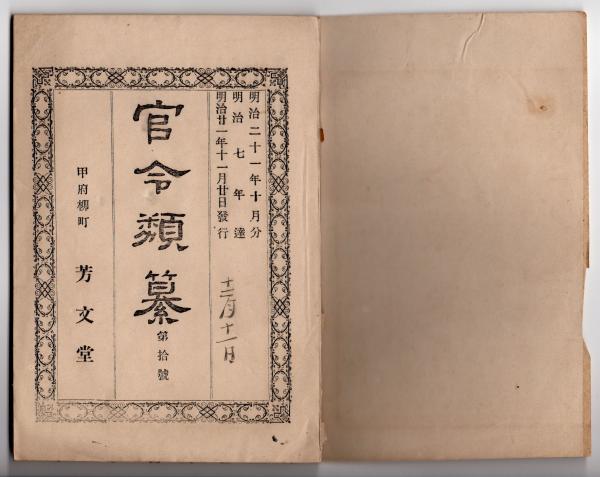 明治二十一年十月分
明治七年達
明治廿一年十一月廿日發行
十二月十一日
官令類纂
第拾號
甲府柳町
芳文堂